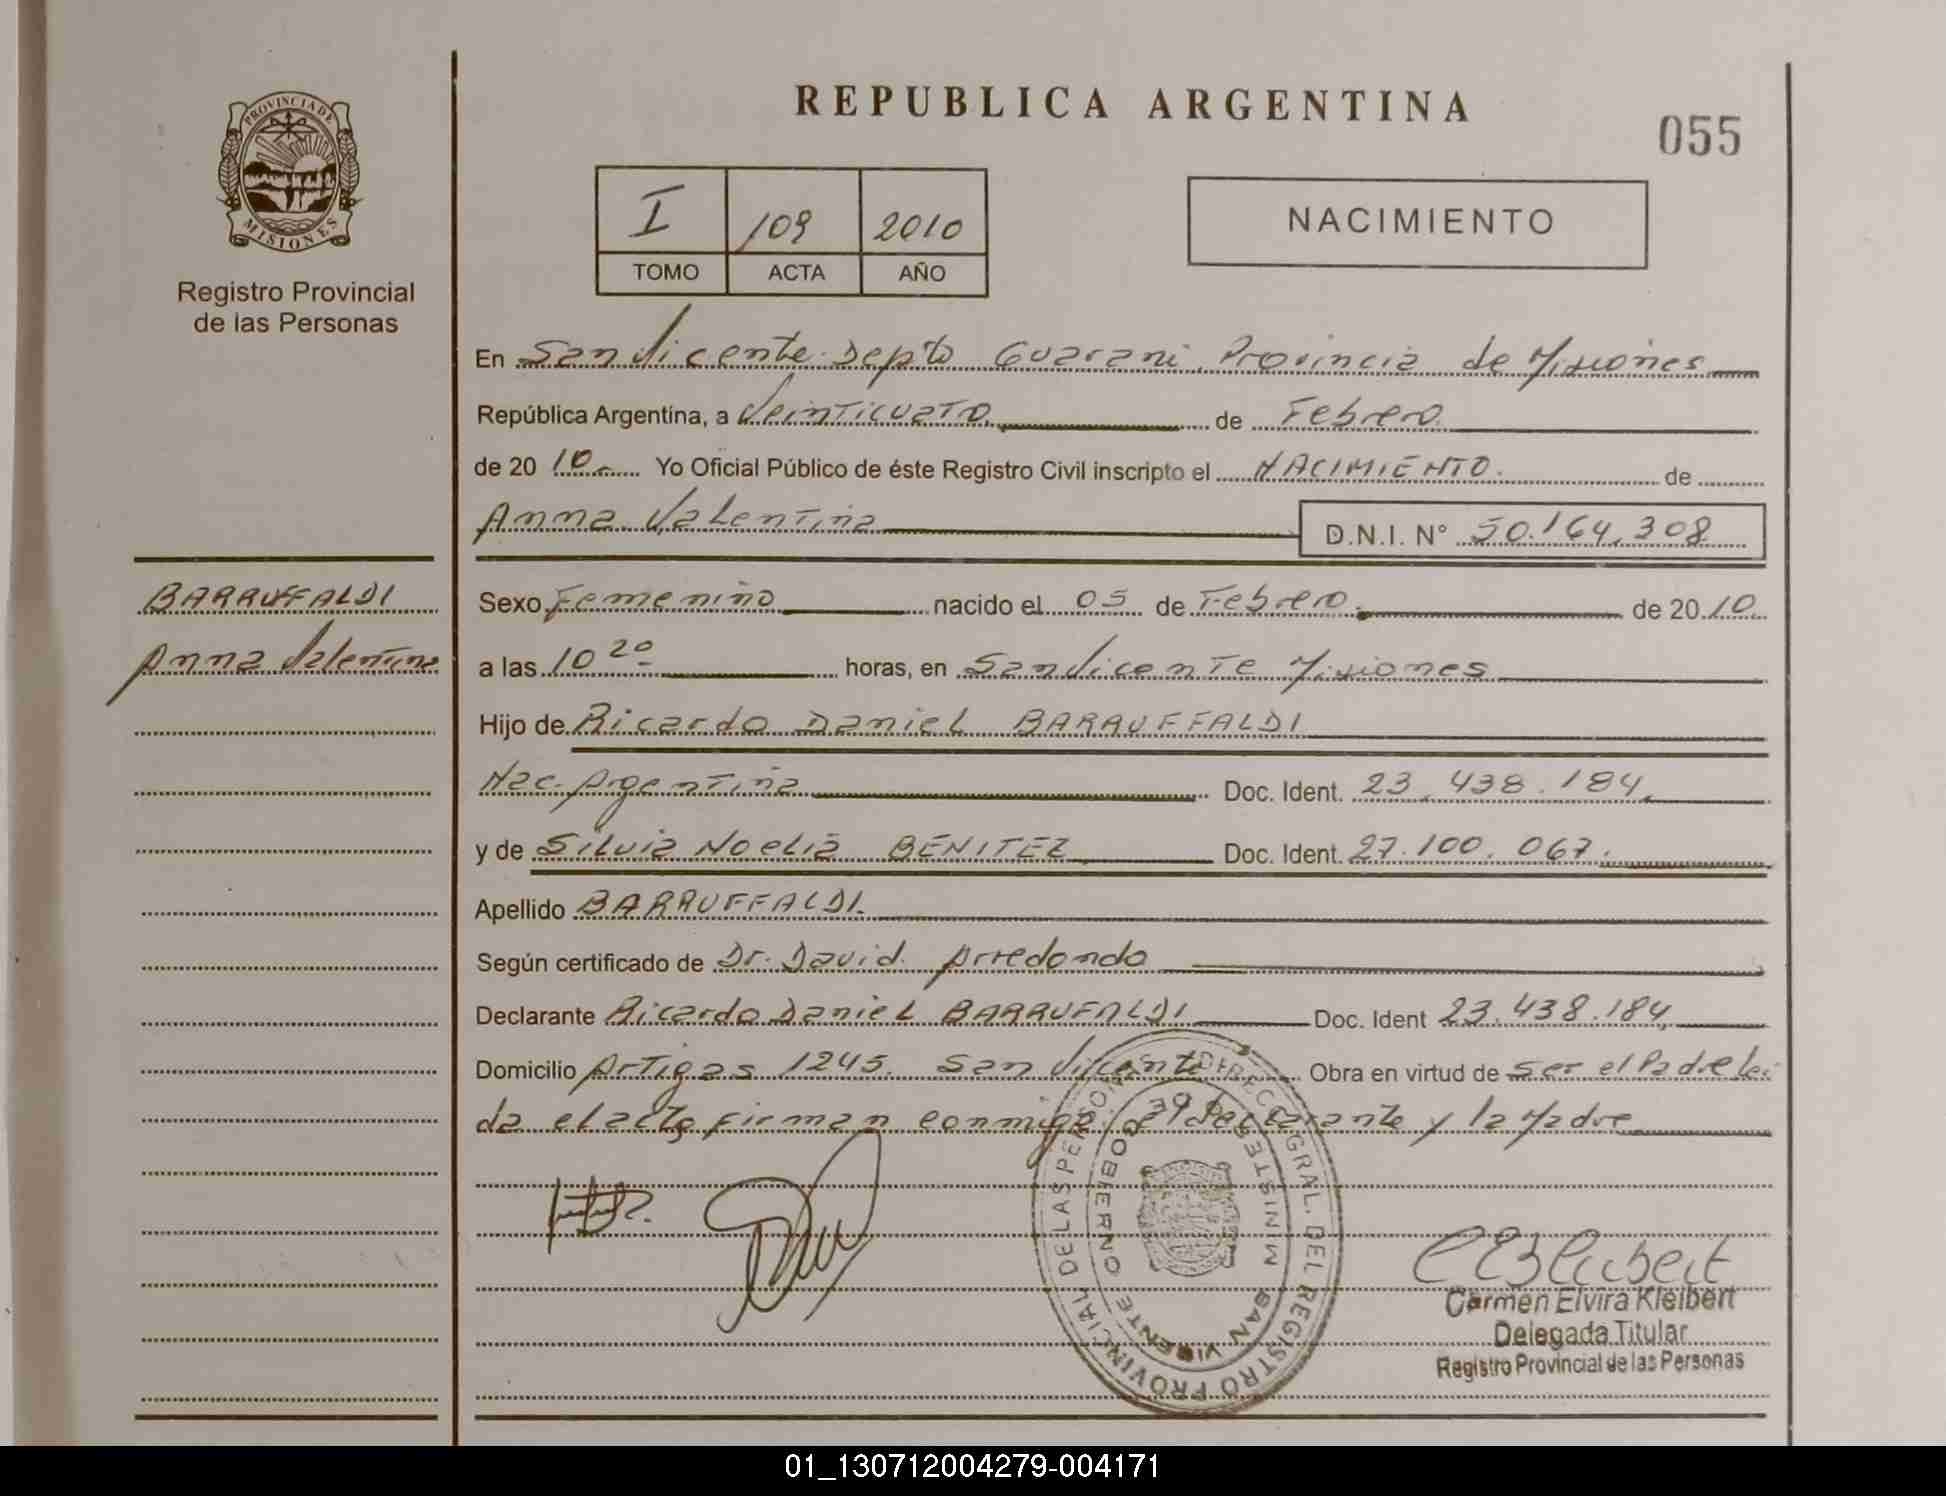 REPUBLICA ARGENTINA
055
PROVINCIA DE
MISIONES
Registro Provincial
de las Personas
I 109 2010
TOMO ACTA AÑO
NACIMIENTO
En San Vicente Depto Guarani Provincia de Misiones
República Argentina, a Veinticuatro de Febrero
de 20 10.- Yo Oficial Público de éste Registro Civil inscripto el NACIMIENTO. de
Anna Valentina D.N.I. N° 50.164.308
BARRUFFALDI
Anna Valentina
Sexo Femenino nacido el 05 de Febrero. de 20 10
a las 10 20 horas, en San Vicente Misiones
Hijo de Ricardo Daniel BARRUFFALDI
Nac. Argentina Doc. Ident. 23.438.184.
y de Silvia Noelia BENITEZ Doc. Ident. 27.100.067.
Apellido BARRUFFALDI.
Según certificado de Dr. David Arredondo
Declarante Ricardo Daniel BARRUFALDI Doc. Ident 23.438.184
Domicilio Artigas 1245. San Vicente Obra en virtud de ser el Padre lei
da el acta firman conmigo el Declarante y la Madre
REGISTRO PROVINCIAL DE LAS PERSONAS
GRAL. DEL
GOBIERNO
SAN VICENTE
Carmen Elvira Kleibert
Delegada Titular
Registro Provincial de las Personas
01_130712004279-004171